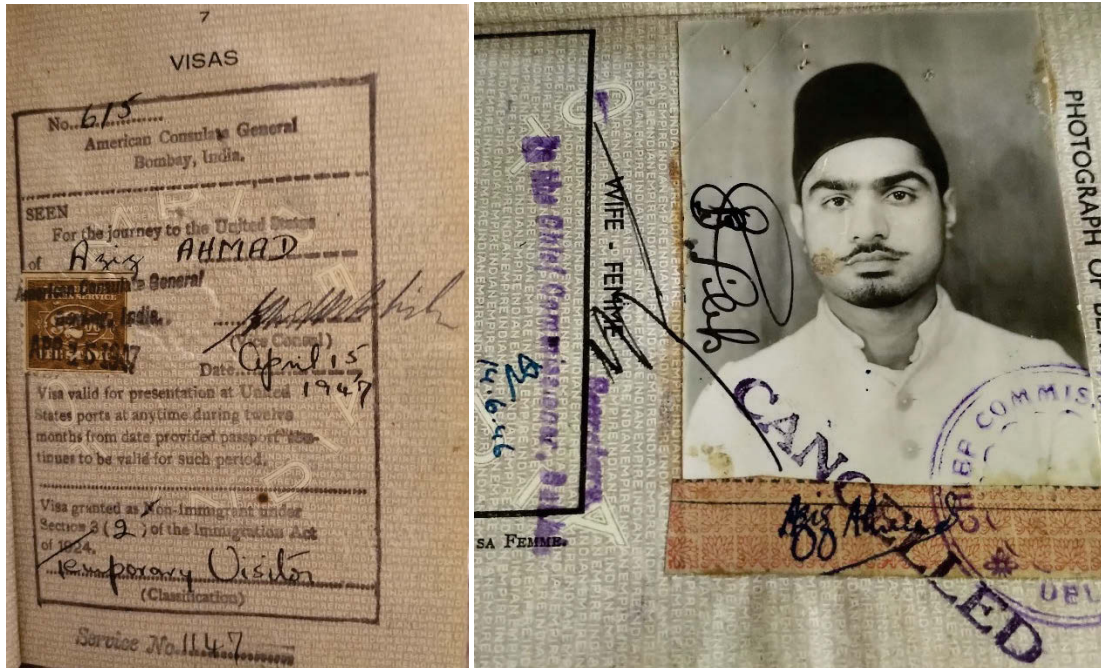 7
VISAS
No. 615
American Consulate General
Bombay, India.
SEEN
For the journey to the United States
of Aziz AHMAD
American Consulate General
India.
(Vice Consul)
Date April 15
1947
Visa valid for presentation at United
States ports at anytime during twelve
months from date provided passport con-
tinues to be valid for such period.
Visa granted as Non-Immigrant under
Section 3 (2) of the Immigration Act
of 1924.
temporary Visitor
(Classification)
Service No. 1147
WIFE - FEMME
Secretary
to the Chief Commissioner, Delhi.
14.6.46
SA FEMME.
PHOTOGRAPH OF
CANCELLED
Aziz Ahmad
COMMIS
DEL